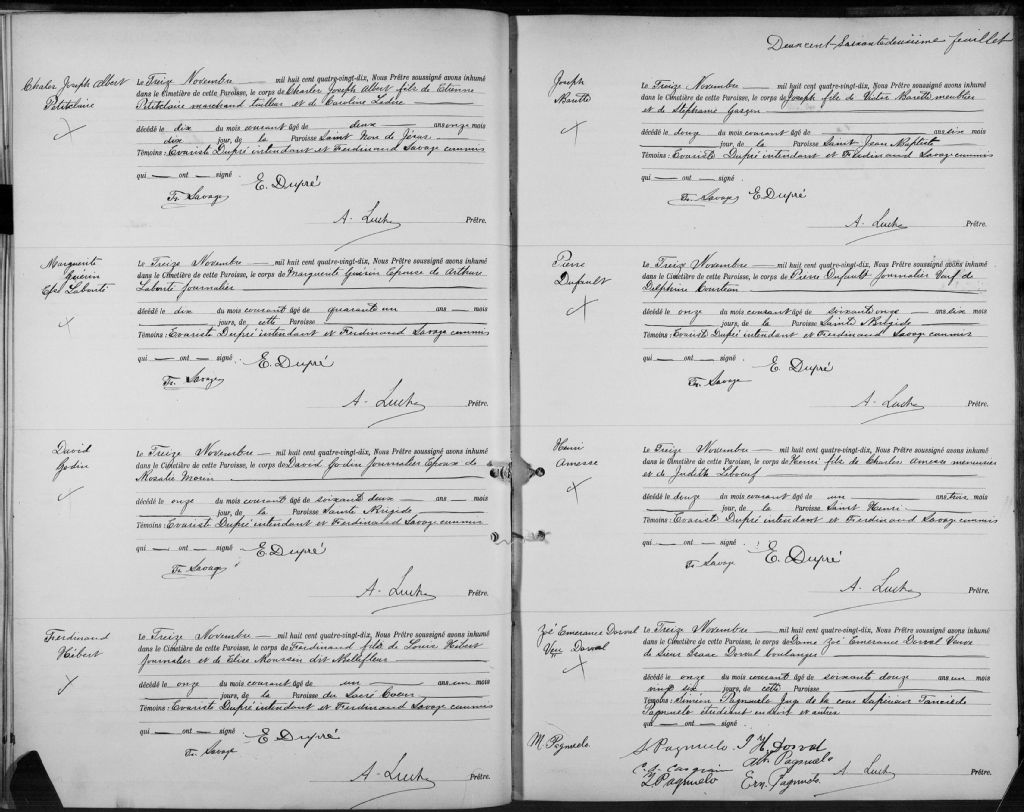 Chales Joseph Albert
Petitclaire
Le Treize Novembre — mil huit cent quatre-vingt-dix, Nous Prêtre soussigné avons inhumé
dans le Cimetière de cette Paroisse, le corps de Charles Joseph Albert fils de Etienne
Petitclaire marchand tailleur et de Caroline
décédé le dix du mois courant âgé de deux ans onze mois
dix jour, de la Paroisse Saint Nom de Jésus
Témoins : Evariste Dupré intendant et Ferdinand Savage commis
qui — ont — signé
E. Dupré
Fr. Savage
A. Prêtre.
Marguerite
Guérin
Eps Laborte
Le Treize Novembre — mil huit cent quatre-vingt-dix, Nous Prêtre soussigné avons inhumé
dans le Cimetière de cette Paroisse, le corps de Marguerite Guérin Epouse de Arthure
Laborte journalier
décédé le dix du mois courant âgé de quarante un ans — mois
jours, de cette Paroisse
Témoins : Evariste Dupré intendant et Ferdinand Savage commis
qui — ont — signé
E. Dupré
Fr. Savage
A. Prêtre.
David
Godin
Le Treize Novembre — mil huit cent quatre-vingt-dix, Nous Prêtre soussigné avons inhumé
dans le Cimetière de cette Paroisse, le corps de David Godin Journalier Epoux de
Rosalie Morin
décédé le onze du mois courant âgé de soixante deux — ans — mois
jour, de la Paroisse Sainte Brigide
Témoins : Evariste Dupré intendant et Ferdinand Savage commis
qui — ont — signé
E. Dupré
Fr. Savage
A. Prêtre.
Ferdinand
Hébert
Le Treize Novembre — mil huit cent quatre-vingt-dix, Nous Prêtre soussigné avons inhumé
dans le Cimetière de cette Paroisse, le corps de Ferdinand fils de Louis Hébert
journalier et de Elise dit Bellefleur
décédé le onze du mois courant âgé de un ans un mois
jours, de la Paroisse du Sacré Coeur
Témoins : Evariste Dupré intendant et Ferdinand Savage commis
qui — ont — signé
E. Dupré
Fr. Savage
A. Prêtre.
Deux cent Soixante deuxième feuillet
Joseph
Barette
Le Treize Novembre — mil huit cent quatre-vingt-dix, Nous Prêtre soussigné avons inhumé
dans le Cimetière de cette Paroisse, le corps de Joseph fils de Victor Barette meublier
et de Stephanie
décédé le douze du mois courant âgé de — ans six mois
jour, de la Paroisse Saint Jean Baptiste
Témoins : Evariste Dupré intendant et Ferdinand Savage commis
qui — ont — signé
Fr. Savage E. Dupré
A. Prêtre.
Pierre
Dufault
Le Treize Novembre — mil huit cent quatre-vingt-dix, Nous Prêtre soussigné avons inhumé
dans le Cimetière de cette Paroisse, le corps de Pierre Dufault Journalier Veuf de
Delphine Courteau
décédé le onze du mois courant âgé de soixante onze — ans six mois
jour, de la Paroisse Sainte Brigide
Témoins : Evariste Dupré intendant et Ferdinand Savage commis
qui — ont — signé
E. Dupré
Fr. Savage
A. Prêtre.
Henri
Amesse
Le Treize Novembre — mil huit cent quatre-vingt-dix, Nous Prêtre soussigné avons inhumé
dans le Cimetière de cette Paroisse, le corps de Henri fils de Charles Amesse menuisier
et de Judith Leboeuf
décédé le douze du mois courant âgé de un ans trois mois
jour, de la Paroisse Saint Henri
Témoins : Evariste Dupré intendant et Ferdinand Savage commis
qui — ont — signé
E. Dupré
Fr Savage
A. Prêtre.
Zoé Emerance Dorval
Veu Dorval
Le Treize Novembre — mil huit cent quatre-vingt-dix, Nous Prêtre soussigné avons inhumé
dans le Cimetière de cette Paroisse, le corps de Dame Zoé Emerance Dorval Veuve
de Sieur Isaac Dorval Boulanger
décédé le onze du mois courant âgé de soixante douze ans un mois
vingt six jours, de cette Paroisse
Témoins : Siméon Pagnuelo Juge de la cour Supérieur Tancrède
Pagnuelo étudiant en droit et autres
qui — ont — signé
M. Pagnuelo.
S. Pagnuelo J. H. Dorval
Ath. Pagnuelo
T. Pagnuelo Ern. Pagnuelo.
A. Prêtre.